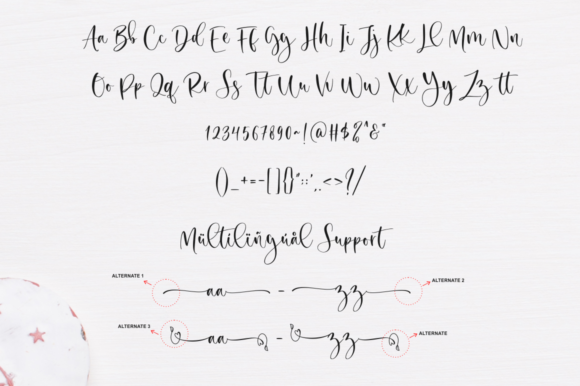 Aa Bb Cc Dd Ee Ff Gg Hh Ii Jj Kk Ll Mm Nn
Oo Pp Qq Rr Ss Tt Uu Vv Ww Xx Yy Zz tt
1234567890~!@#$%^&*
()_+=-[]{}":;',.<>?/
Mültilïñgúål Support
ALTERNATE 1 aa - zz ALTERNATE 2
ALTERNATE 3 aa - zz ALTERNATE